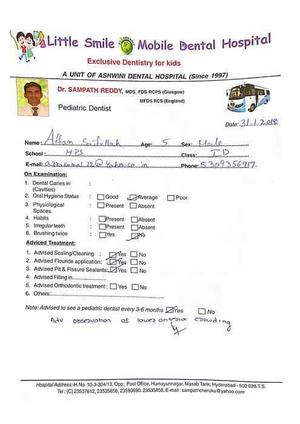 Little Smile Mobile Dental Hospital
Exclusive Dentistry for kids
A UNIT OF ASHWINI DENTAL HOSPITAL (Since 1997)
Dr. SAMPATH REDDY, MDS, FDS RCPS (Glasgow)
MFDS RCS (England)
Pediatric Dentist
Date: 31.1.2018
Name: Affan Saifullah Age: 5 Sex: Male
School: HPS Class: I D
E-mail: Phone: 5309356917
On Examination:
1. Dental Caries in
(Cavities)
2. Oral Hygiene Status : Good Average Poor
3. Physiological : Present Absent
Spaces
4. Habits : Present Absent
5. Irregular teeth : Present Absent
6. Brushing twice : Yes No
Adviced Treatment:
1. Advised Scaling/Cleaning : Yes No
2. Advised Fluoride application: Yes No
3. Advised Pit & Fissure Sealants: Yes No
4. Advised Filling in
5. Advised Orthodontic treatment: Yes No
6. Others:
Note: Advised to see a pediatric dentist every 3-6 months Yes No
Adv observation at lower anterior crowding
Hospital Address-H.No. 10-3-304/13, Opp. Post Office, Humayunnagar, Masab Tank, Hyderabad - 500 028 T.S.
Tel.: (C) 23537612, 23535656, 23590690, 23535858, E-mail: sampathcheruku@yahoo.com